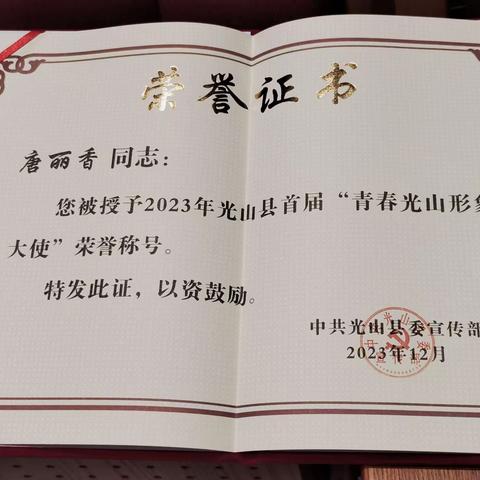 荣誉证书
唐丽香 同志：
您被授予2023年光山县首届“青春光山形象
大使”荣誉称号。
特发此证，以资鼓励。
中共光山县委宣传部
2023年12月